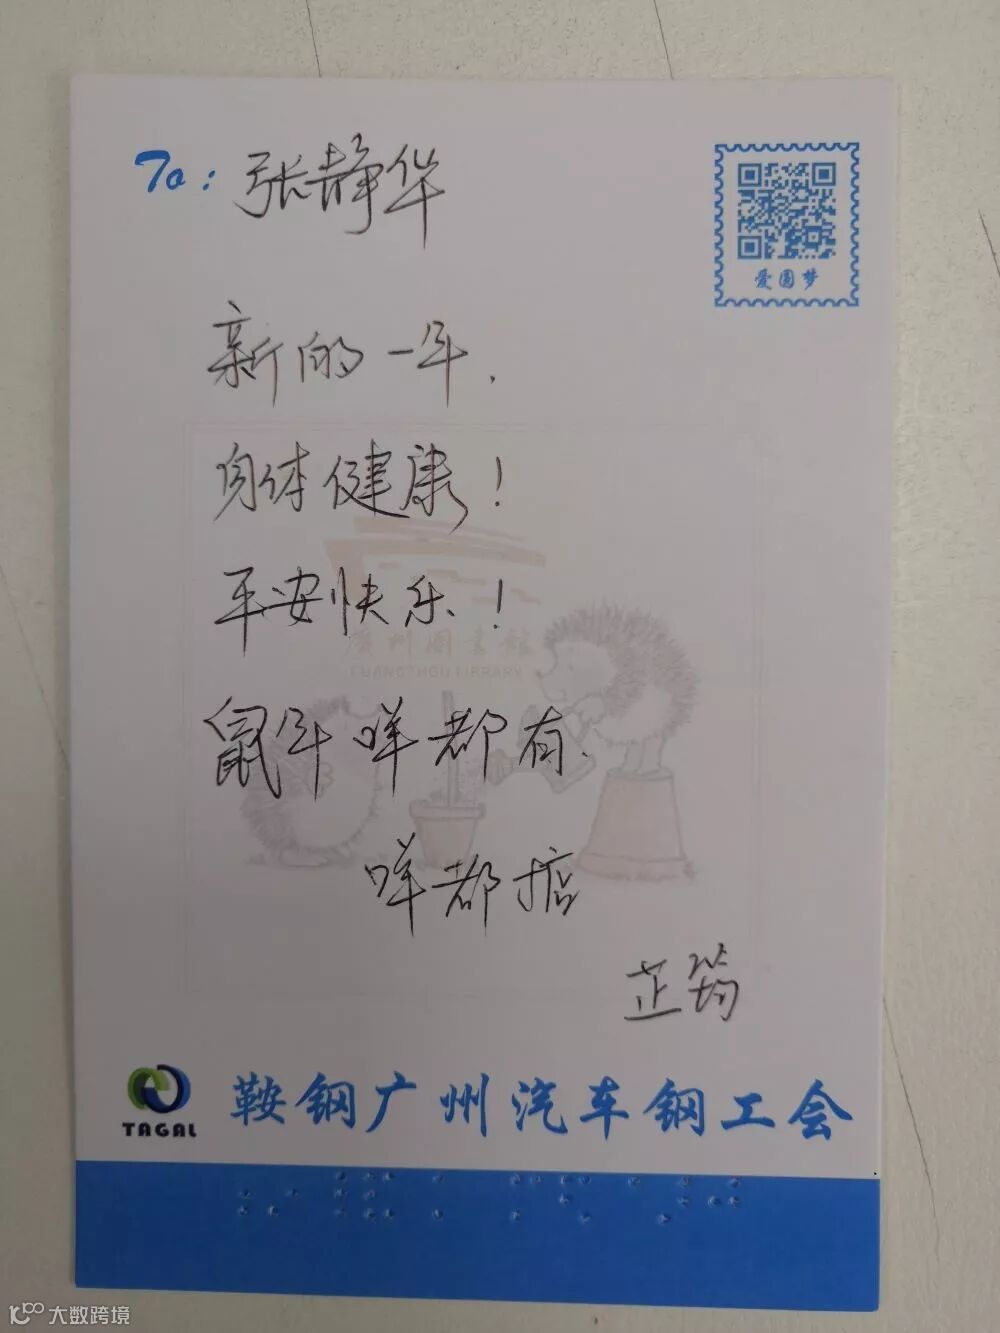 To: 张静华
爱圆梦
新的一年.
身体健康！
平安快乐！
廣州图书館
GUANGZHOU LIBRARY
鼠年咩都有.
咩都掂
芷筠
TAGAL
鞍钢广州汽车钢工会
大数跨境